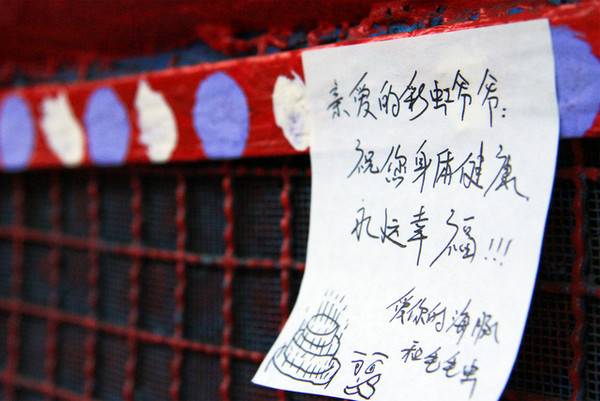 亲爱的彩虹爷爷：
祝您身体健康
永远幸福!!!
爱你的海豚
和毛毛虫